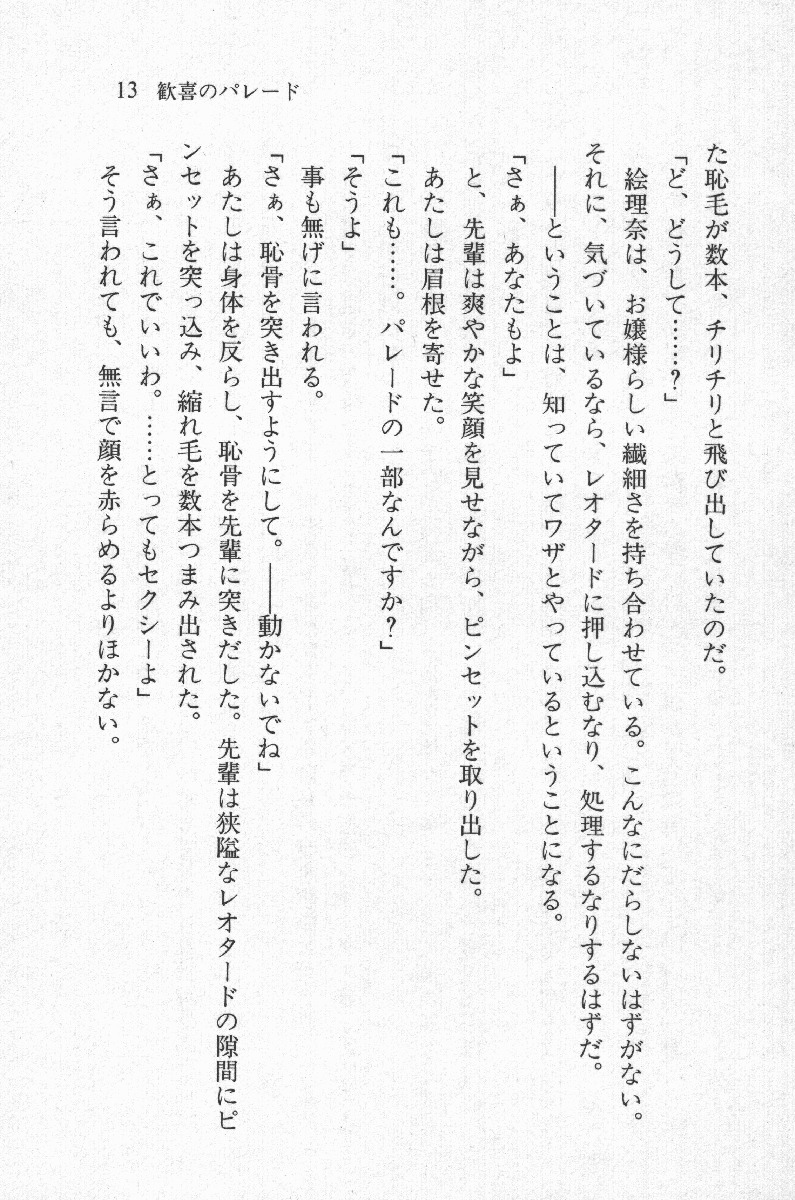 13 歓喜のパレード
た恥毛が数本、チリチリと飛び出していたのだ。
「ど、どうして……？」
絵理奈は、お嬢様らしい繊細さを持ち合わせている。こんなにだらしないはずがない。
それに、気づいているなら、レオタードに押し込むなり、処理するなりするはずだ。
――ということは、知っていてワザとやっているということになる。
「さぁ、あなたもよ」
と、先輩は爽やかな笑顔を見せながら、ピンセットを取り出した。
あたしは眉根を寄せた。
「これも……。パレードの一部なんですか？」
「そうよ」
事も無げに言われる。
「さぁ、恥骨を突き出すようにして。――動かないでね」
あたしは身体を反らし、恥骨を先輩に突きだした。先輩は狭隘なレオタードの隙間にピ
ンセットを突っ込み、縮れ毛を数本つまみ出された。
「さぁ、これでいいわ。……とってもセクシーよ」
そう言われても、無言で顔を赤らめるよりほかない。